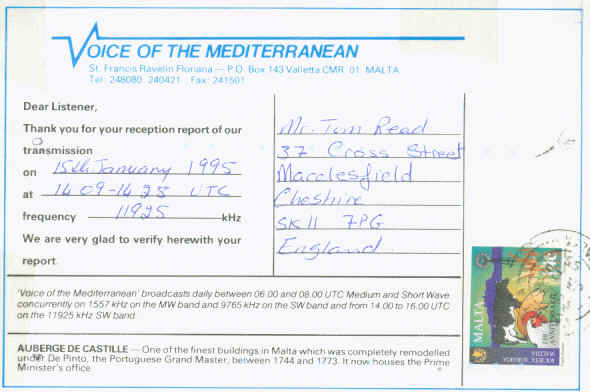 VOICE OF THE MEDITERRANEAN
St. Francis Ravelin Floriana — P.O. Box 143 Valletta CMR. 01. MALTA
Tel: 248080 240421 Fax: 241501
Dear Listener,
Thank you for your reception report of our
transmission
on 15th January 1995
at 14 09-14 25 UTC
frequency 11925 kHz
We are very glad to verify herewith your
report.
Mr. Tom Read
37 Cross Street
Macclesfield
Cheshire
SK11 7PG
England
'Voice of the Mediterranean' broadcasts daily between 06.00 and 08.00 UTC Medium and Short Wave
concurrently on 1557 kHz on the MW band and 9765 kHz on the SW band and from 14.00 to 16.00 UTC
on the 11925 kHz SW band.
AUBERGE DE CASTILLE — One of the finest buildings in Malta which was completely remodelled
under De Pinto, the Portuguese Grand Master, between 1744 and 1773. It now houses the Prime
Minister's office.
MALTA